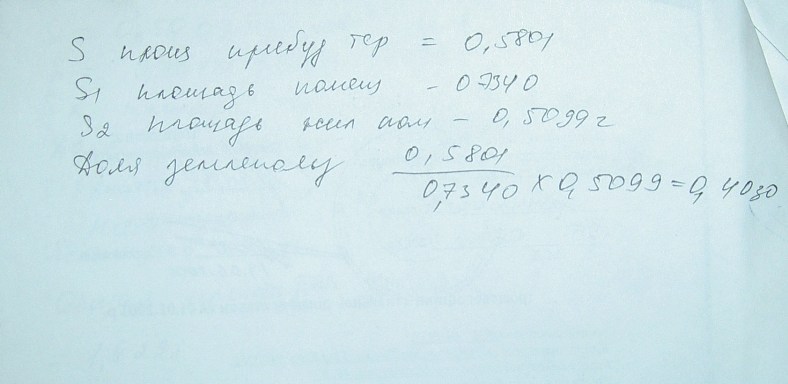 S площ прибуд тер = 0,5801
S1 площадь помещ - 07340
S2 площадь жил пом - 0,5099 г
Доля землеполу 0,5801 / 0,7340 X 0,5099 = 0,4030